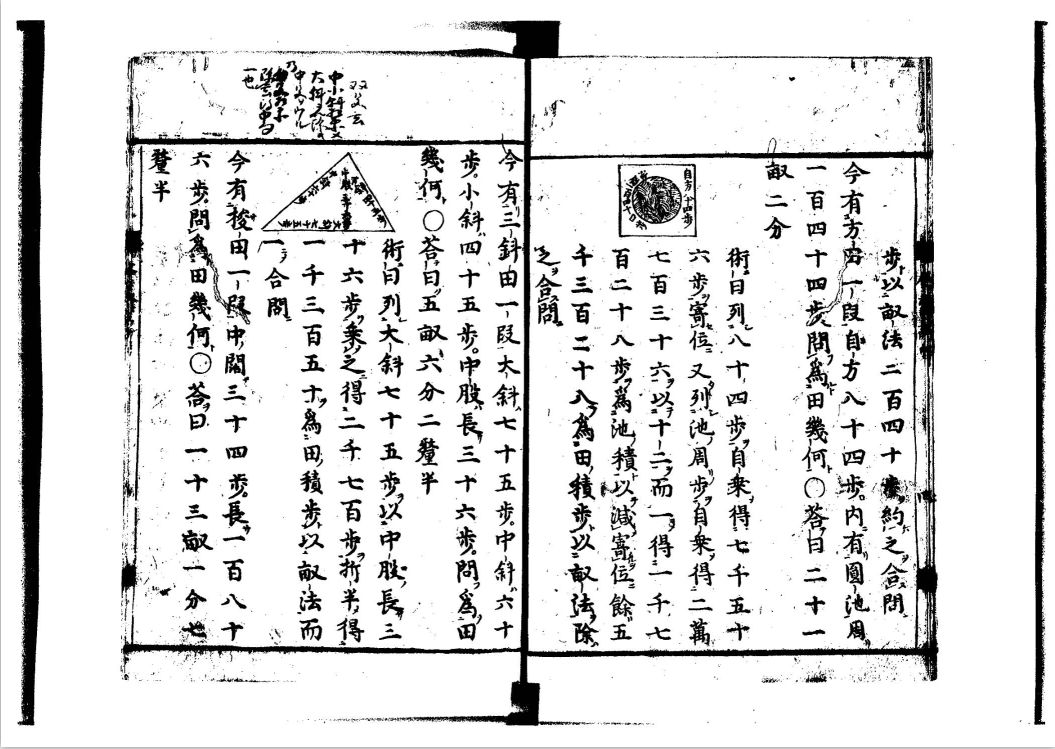 歩以畝法二百四十歩約之合問
今有方田一段自方八十四歩内有圓池周
一百四十四歩問爲田幾何〇荅曰二十一
畝二分
自方八十四歩
術曰列八十四歩自乗得七千五十
六歩寄位又列池周歩自乗得二萬
七百三十六以十二而一得一千七
百二十八歩爲池積以減寄位餘五
千三百二十八爲田積歩以畝法除
之合問
今有三斜田一段大斜七十五歩中斜六十
歩小斜四十五歩中股長三十六歩問爲田
幾何〇荅曰五畝六分二釐半
術曰列大斜七十五歩以中股長三
十六歩乗之得二千七百歩折半得
一千三百五十爲田積歩以畝法而
一合問
今有梭田一段中闊三十四歩長一百八十
六歩問爲田幾何〇荅曰一十三畝一分七
釐半